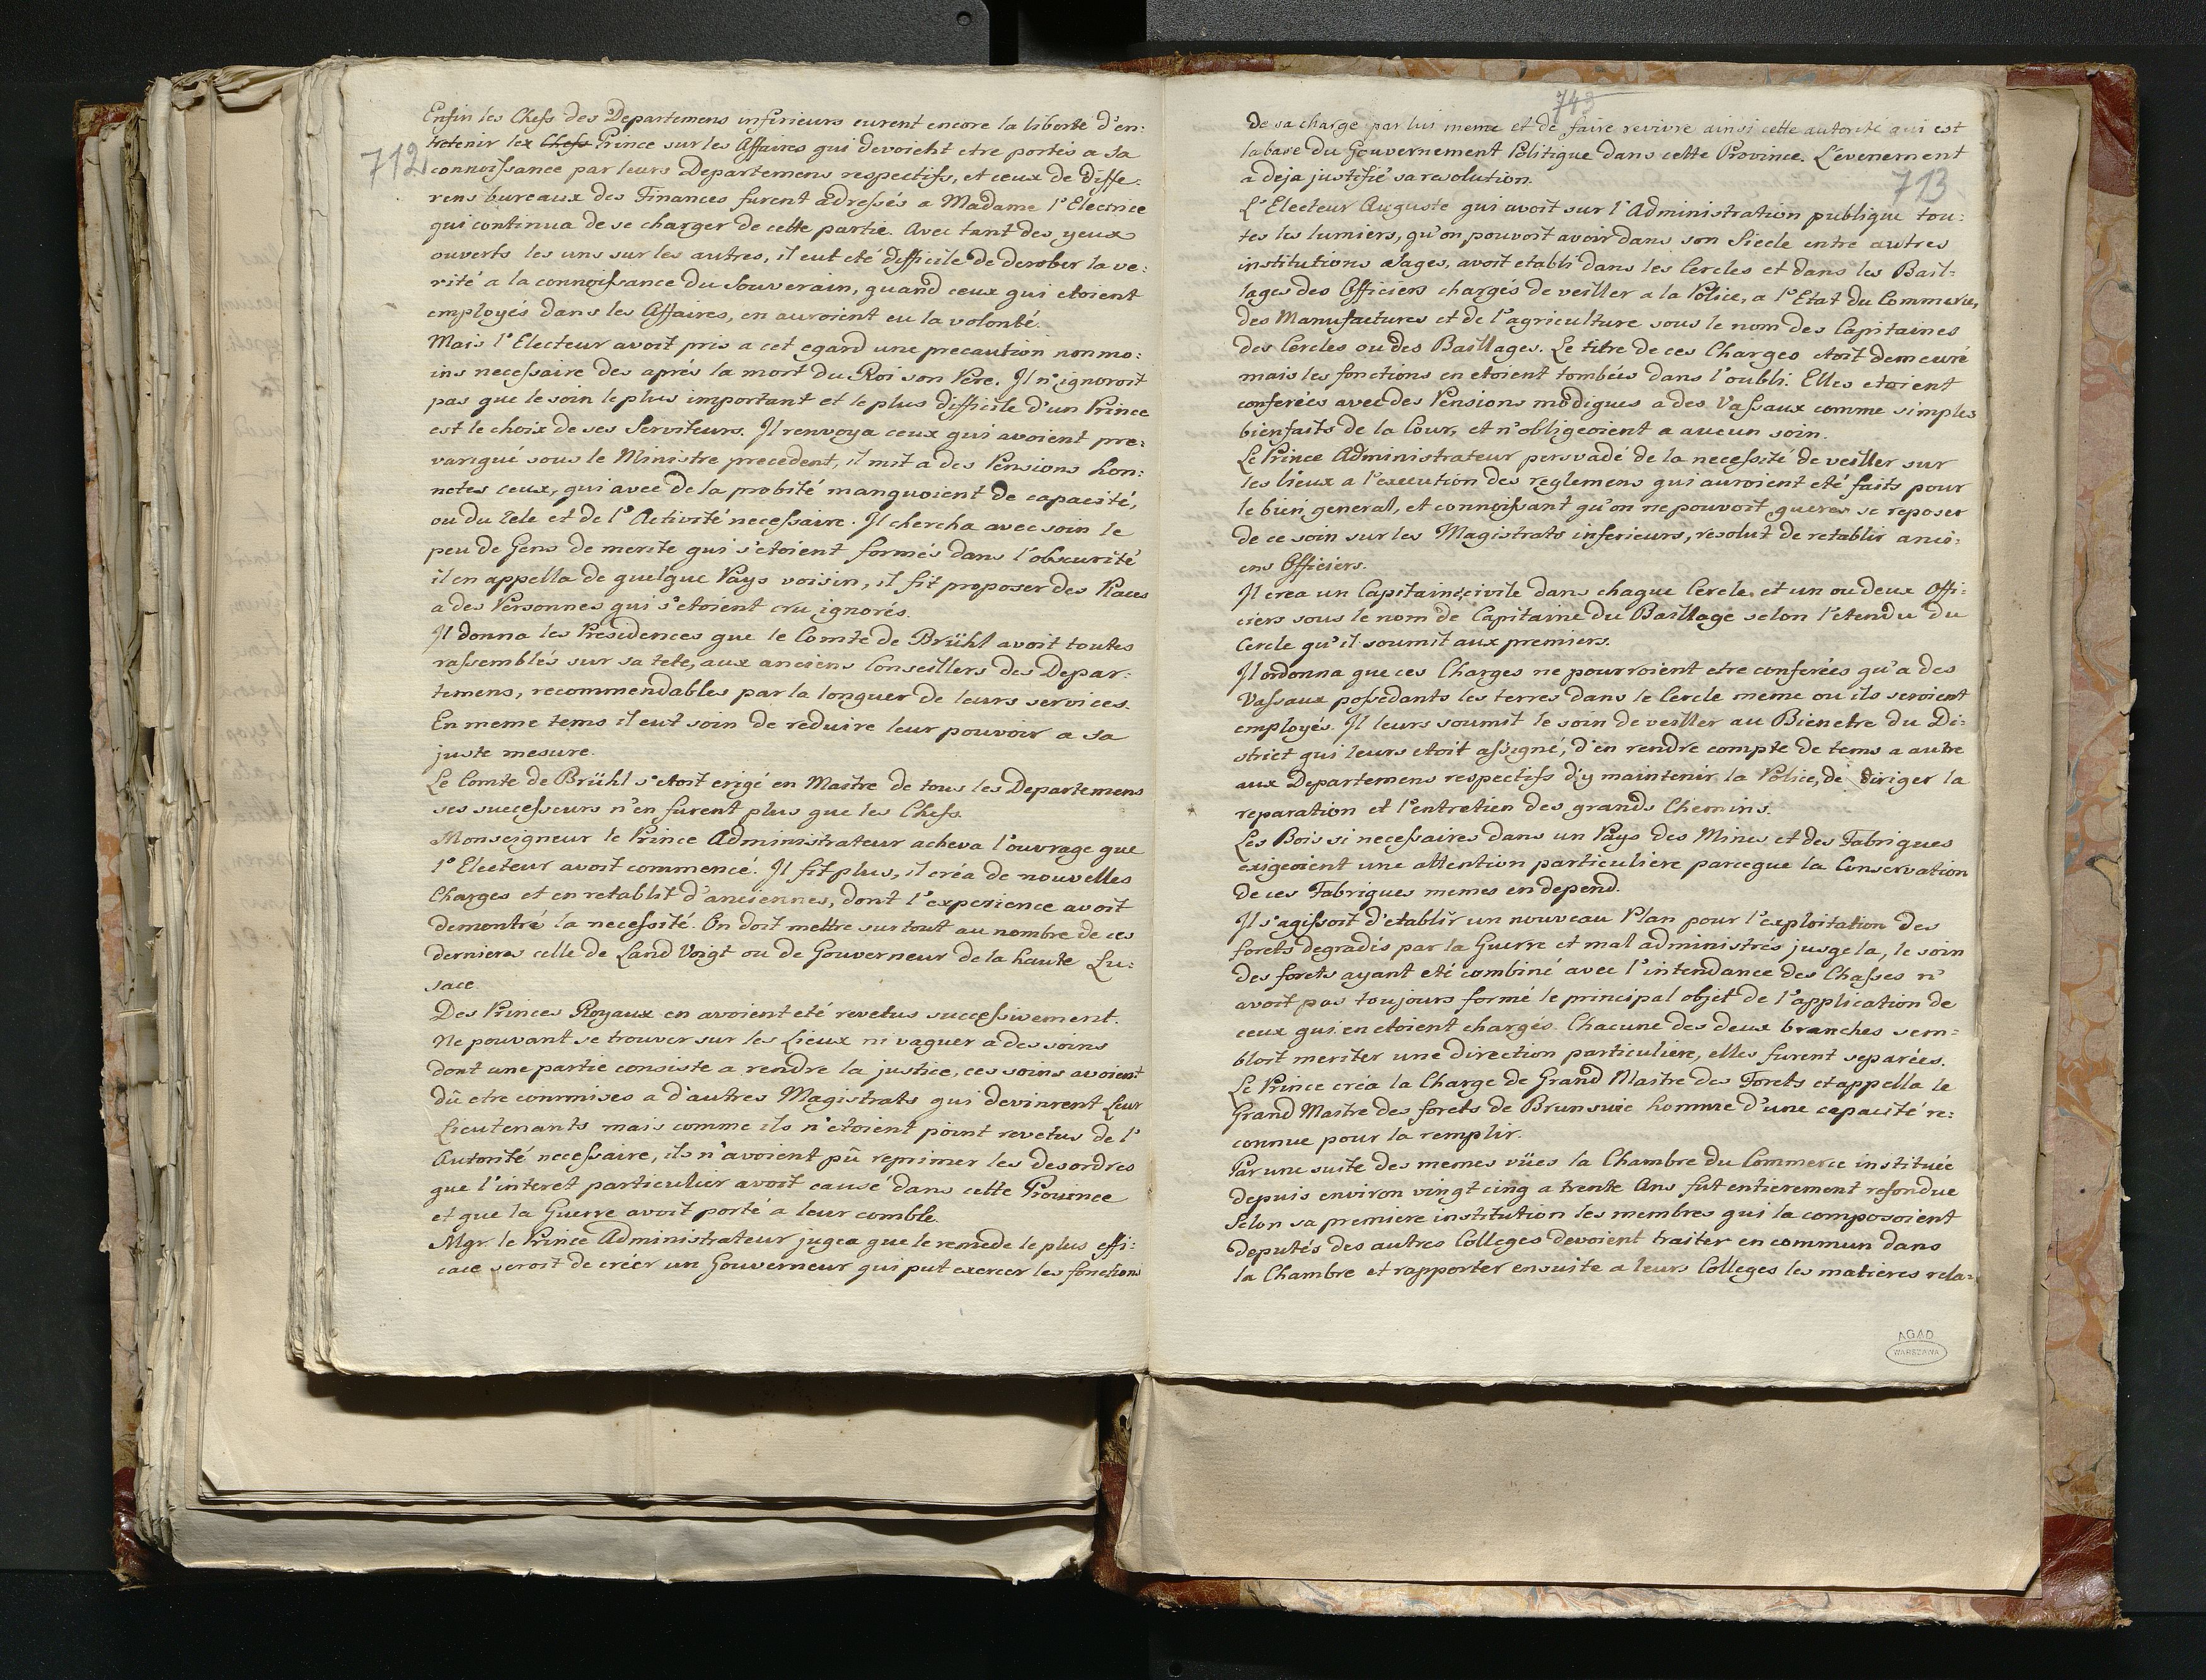 712
Enfin les Chefs des Departemens inferieurs eurent encore la liberté d'en:
tretenir lex Chefs Prince sur les Affaires qui devoient etre portés a sa
connoissance par leurs Departemens respectifs, et ceux de diffe:
rens bureaux des Finances furent adressés a Madame l'Electrice
qui continua de se charger de cette partie. Avec tant des yeux
ouverts les uns sur les autres, il eut eté difficile de derober la ve:
rité a la connoissance du Souverain, quand ceux qui etoient
employés dans les Affaires, en auroient eu la volonté.
Mais l'Electeur avoit pris a cet egard une precaution non mo:
ins necessaire des aprés la mort du Roi son Pere. Il n'ignoroit
pas que le soin le plus important et le plus difficile d'un Prince
est le choix de ses Serviteurs. Il renvoya ceux qui avoient pre:
variqué sous le Ministre precedent, il mit a des Pensions hon:
netes ceux, qui avec de la probité manquoient de capacité,
ou du Zele et de l'Activité necessaire. Il chercha avec soin le
peu de Gens de merite qui s'etoient formés dans l'obscurité
il en appella de quelque Pays voisin, il fit proposer des Places
a des Personnes qui s'etoient cru ignorés.
Il donna les Presidences que le Comte de Brühl avoit toutes
rassemblés sur sa tete, aux anciens Conseillers des Depar:
temens, recommendables par la longuer de leurs services.
En meme tems il eut soin de reduire leur pouvoir a sa
juste mesure.
Le Comte de Brühl s'etoit erigé en Maitre de tous les Departemens
ses successeurs n'en furent plus que les Chefs.
Monseigneur le Prince Administrateur acheva l'ouvrage que
l'Electeur avoit commencé. Il fit plus, il créa de nouvelles
Charges et en retablit d'anciennes, dont l'experience avoit
demontré la necessité. On doit mettre sur tout au nombre de ces
dernieres celle de Land Voigt ou de Gouverneur de la haute Lu:
sace.
Des Princes Royaux en avoient eté revetus successivement.
Ne pouvant se trouver sur les Lieux ni vaguer a des soins
dont une partie consiste a rendre la justice, ces soins avoient
dû etre commises a d'autres Magistrats qui devinrent Leur
Lieutenants mais comme ils n'etoient point revetus de l'
Autorité necessaire, ils n'avoient pû reprimer les desordres
que l'interet particulier avoit causé dans cette Province
et que la Guerre avoit porté a leur comble.
Mgr. le Prince Administrateur jugea que le remede le plus effi:
cace seroit de créer un Gouverneur qui put exercer les fonctions
743
713
de sa charge par lui meme et de faire revivre ainsi cette autorité qui est
la base du Gouvernement Politique dans cette Province. L'evenement
a deja justifié sa resolution.
L'Electeur Auguste qui avoit sur l'Administration publique tou:
tes les lumiers, qu'on pouvoit avoir dans son Siecle entre autres
institutions sages, avoit etabli dans les Cercles et dans les Bail=
lages des Officiers chargés de veiller a la Police, a l'Etat du Commerce,
des Manufactures et de l'agriculture sous le nom des Capitaines
des Cercles ou des Baillages. Le titre de ces Charges etoit demeuré
mais les fonctions en etoient tombées dans l'oubli. Elles etoient
conferées avec des Pensions modiques a des Vassaux comme simples
bienfaits de la Cour, et n'obligeoient a aucun soin.
Le Prince Administrateur persvadé de la necessité de veiller sur
les lieux a l'execution des reglemens qui auroient eté faits pour
le bien general, et connoissant qu'on ne pouvoit gueres se reposer
de ce soin sur les Magistrats inferieurs, resolut de retablir anci:
ens Officiers.
Il crea un Capitaine civile dans chaque Cercle, et un ou deux Offi:
ciers sous le nom de Capitaine du Baillage selon l'etendu du
Cercle qu'il soumit aux premiers.
Il ordonna que ces Charges ne pourroient etre conferées qu'a des
Vassaux possedants les terres dans le Cercle meme ou ils seroient
employés. Il leurs soumit le soin de veiller au Bienetre du Di:
strict qui leurs etoit assigné, d'en rendre compte de tems a autre
aux Departemens respectifs d'y maintenir la Police, de diriger la
reparation et l'entretien des grands Chemins.
Les Bois si necessaires dans un Pays des Mines et des Fabriques
exigeoient une attention particuliere parceque la Conservation
de ces Fabriques memes en depend.
Il s'agissoit d'etablir un nouveau Plan pour l'exploitation des
forets degradés par la Guerre et mal administrés jusge la, le soin
des forets ayant eté combiné avec l'intendance des Chasses n'
avoit pas toujours formé le principal objet de l'application de
ceux qui en etoient chargés. Chacune des deux branches sem=
bloit meriter une direction particuliere, elles furent separées.
Le Prince créa la Charge de Grand Maitre des Forets et appella le
Grand Maitre des forets de Brunsuic homme d'une capacité re:
connue pour la remplir.
Par une suite des memes vües la Chambre du Commerce instituée
depuis environ vingt cinq a trente Ans fut entierement refondue
Selon sa premiere institution les membres qui la composoient
deputés des autres Colleges devoient traiter en commun dans
la Chambre et rapporter ensuite a leurs Colleges les matieres rela=
AGAD
WARSZAWA